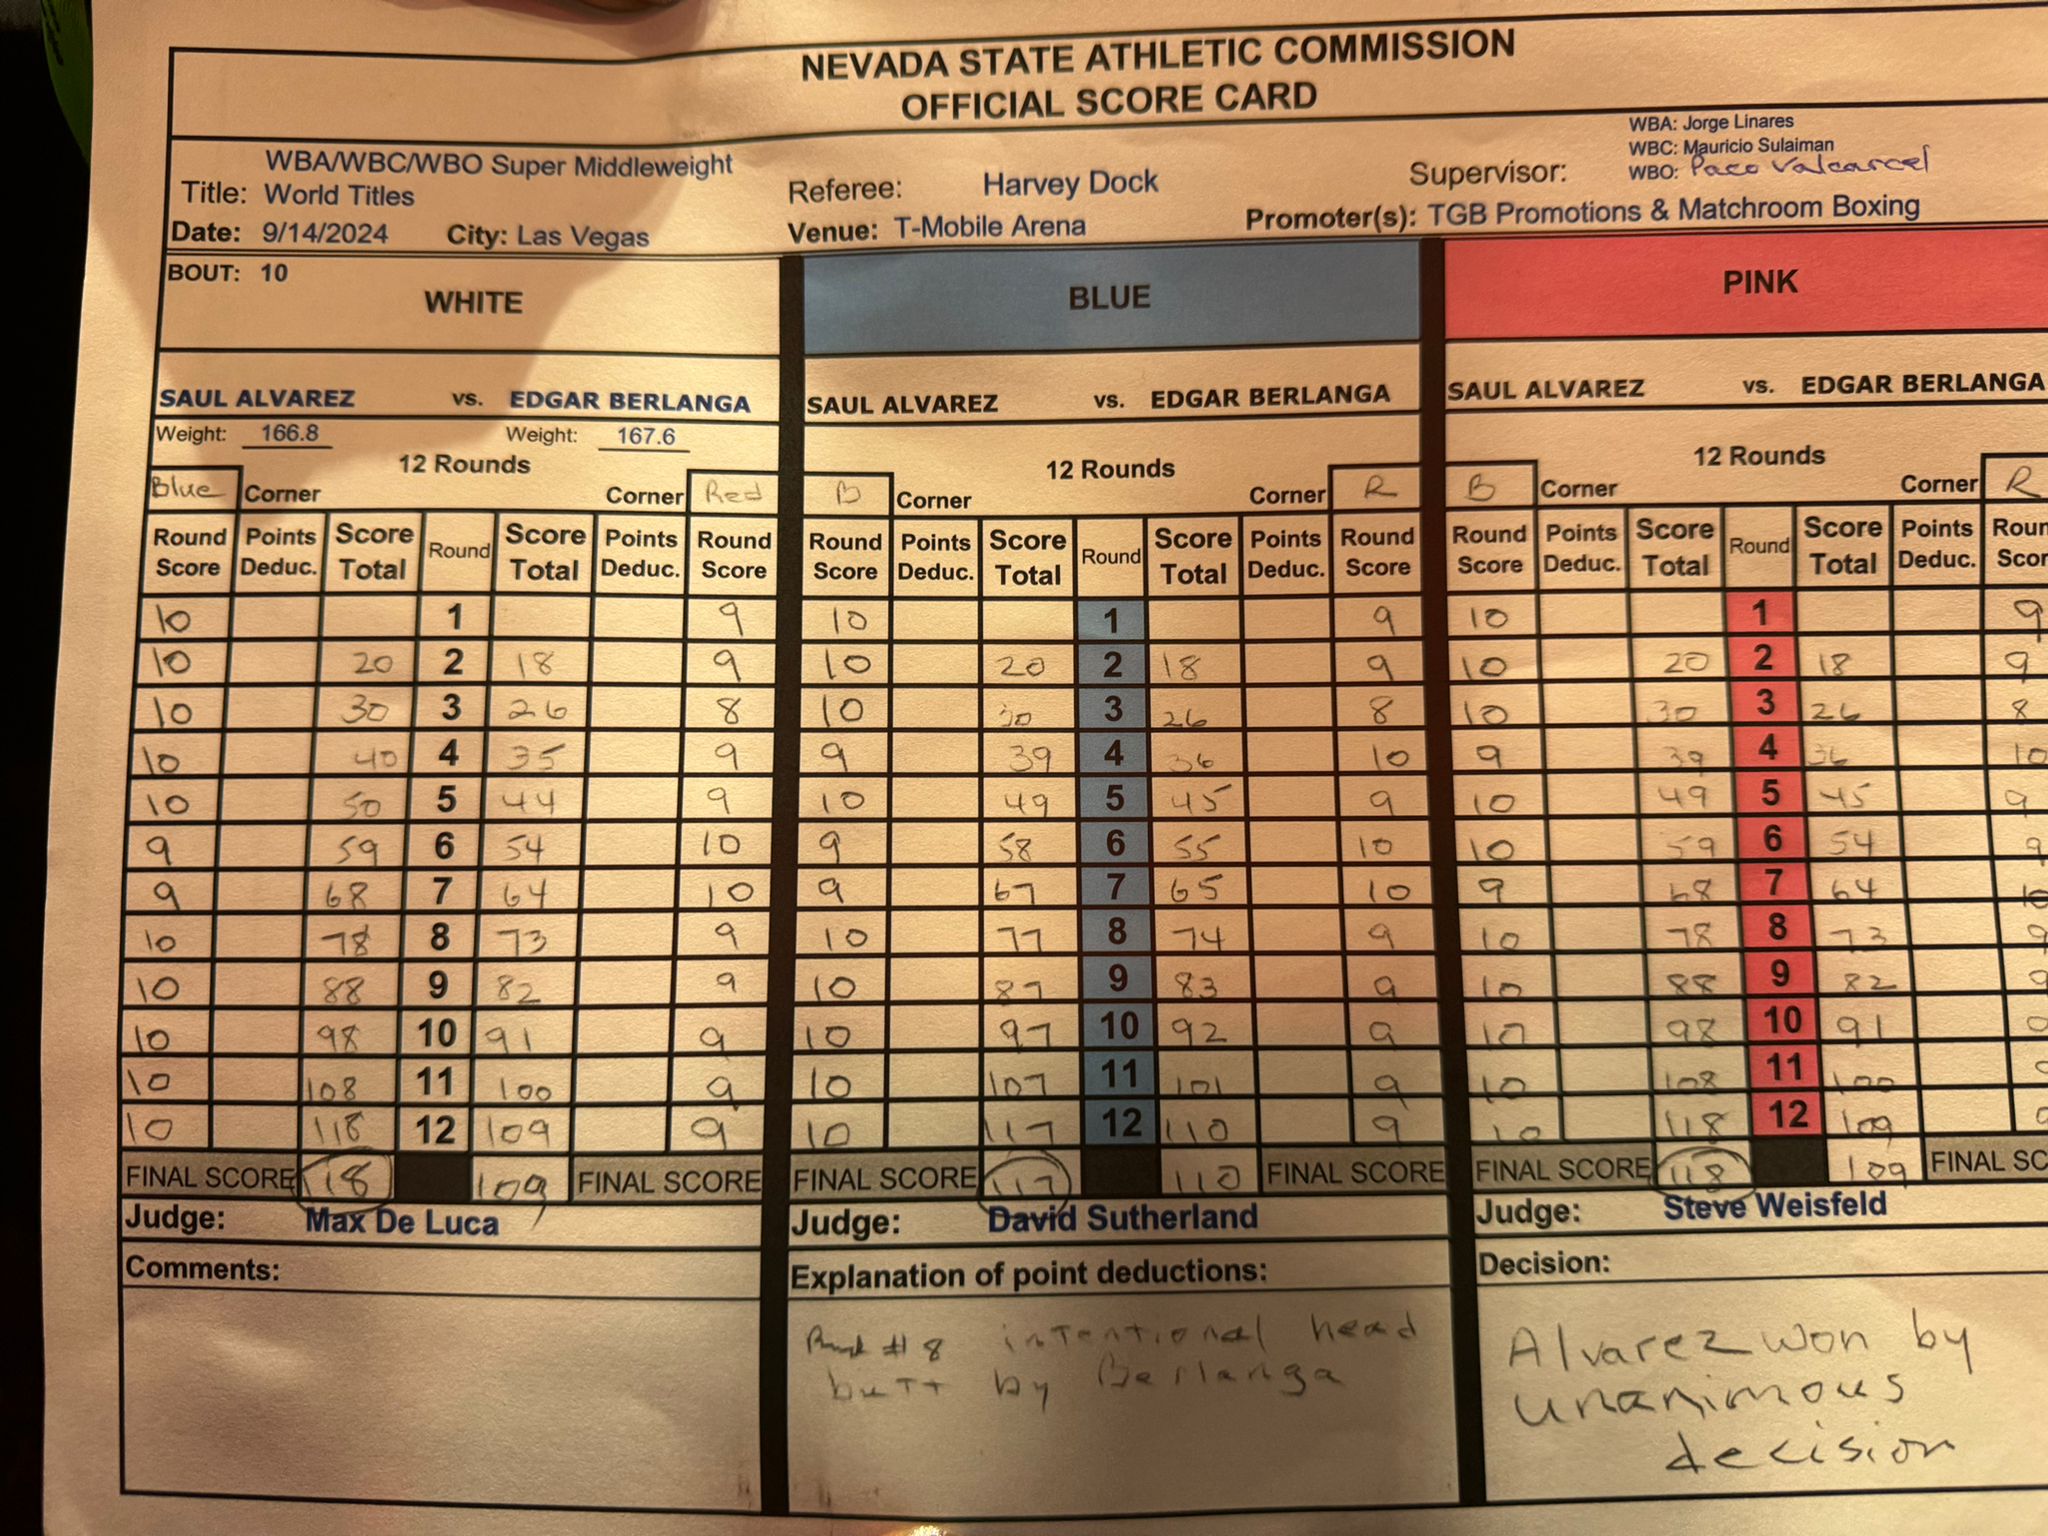 NEVADA STATE ATHLETIC COMMISSION
OFFICIAL SCORE CARD
WBA/WBC/WBO Super Middleweight
Title: World Titles
Referee: Harvey Dock
Supervisor:
WBA: Jorge Linares
WBC: Mauricio Sulaiman
WBO: Paco Valcarcel
Date: 9/14/2024 City: Las Vegas Venue: T-Mobile Arena Promoter(s): TGB Promotions & Matchroom Boxing
BOUT: 10
WHITE BLUE PINK
SAUL ALVAREZ vs. EDGAR BERLANGA SAUL ALVAREZ vs. EDGAR BERLANGA SAUL ALVAREZ vs. EDGAR BERLANGA
Weight: 166.8 Weight: 167.6
12 Rounds 12 Rounds 12 Rounds
Blue Corner Corner Red B Corner Corner R B Corner Corner R
Round Points Score Round Score Points Round Round Points Score Round Score Points Round Round Points Score Round Score Points Roun
Score Deduc. Total Total Deduc. Score Score Deduc. Total Total Deduc. Score Score Deduc. Total Total Deduc. Scor
10 1 9 10 1 9 10 1 9
10 20 2 18 9 10 20 2 18 9 10 20 2 18 9
10 30 3 26 8 10 30 3 26 8 10 30 3 26 8
10 40 4 35 9 9 39 4 36 10 9 39 4 36 10
10 50 5 44 9 10 49 5 45 9 10 49 5 45 9
9 59 6 54 10 9 58 6 55 10 10 59 6 54 9
9 68 7 64 10 9 67 7 65 10 9 68 7 64 10
10 78 8 73 9 10 77 8 74 9 10 78 8 73 9
10 88 9 82 9 10 87 9 83 9 10 88 9 82 9
10 98 10 91 9 10 97 10 92 9 10 98 10 91
10 108 11 100 9 10 107 11 101 9 10 108 11 100
10 118 12 109 9 10 117 12 110 9 10 118 12 109
FINAL SCORE 118 109 FINAL SCORE FINAL SCORE 117 110 FINAL SCORE FINAL SCORE 118 109 FINAL SC
Judge: Max De Luca Judge: David Sutherland Judge: Steve Weisfeld
Comments:
Explanation of point deductions:
#8 intentional head
butt by Berlanga
Decision:
Alvarez won by
unanimous
decision